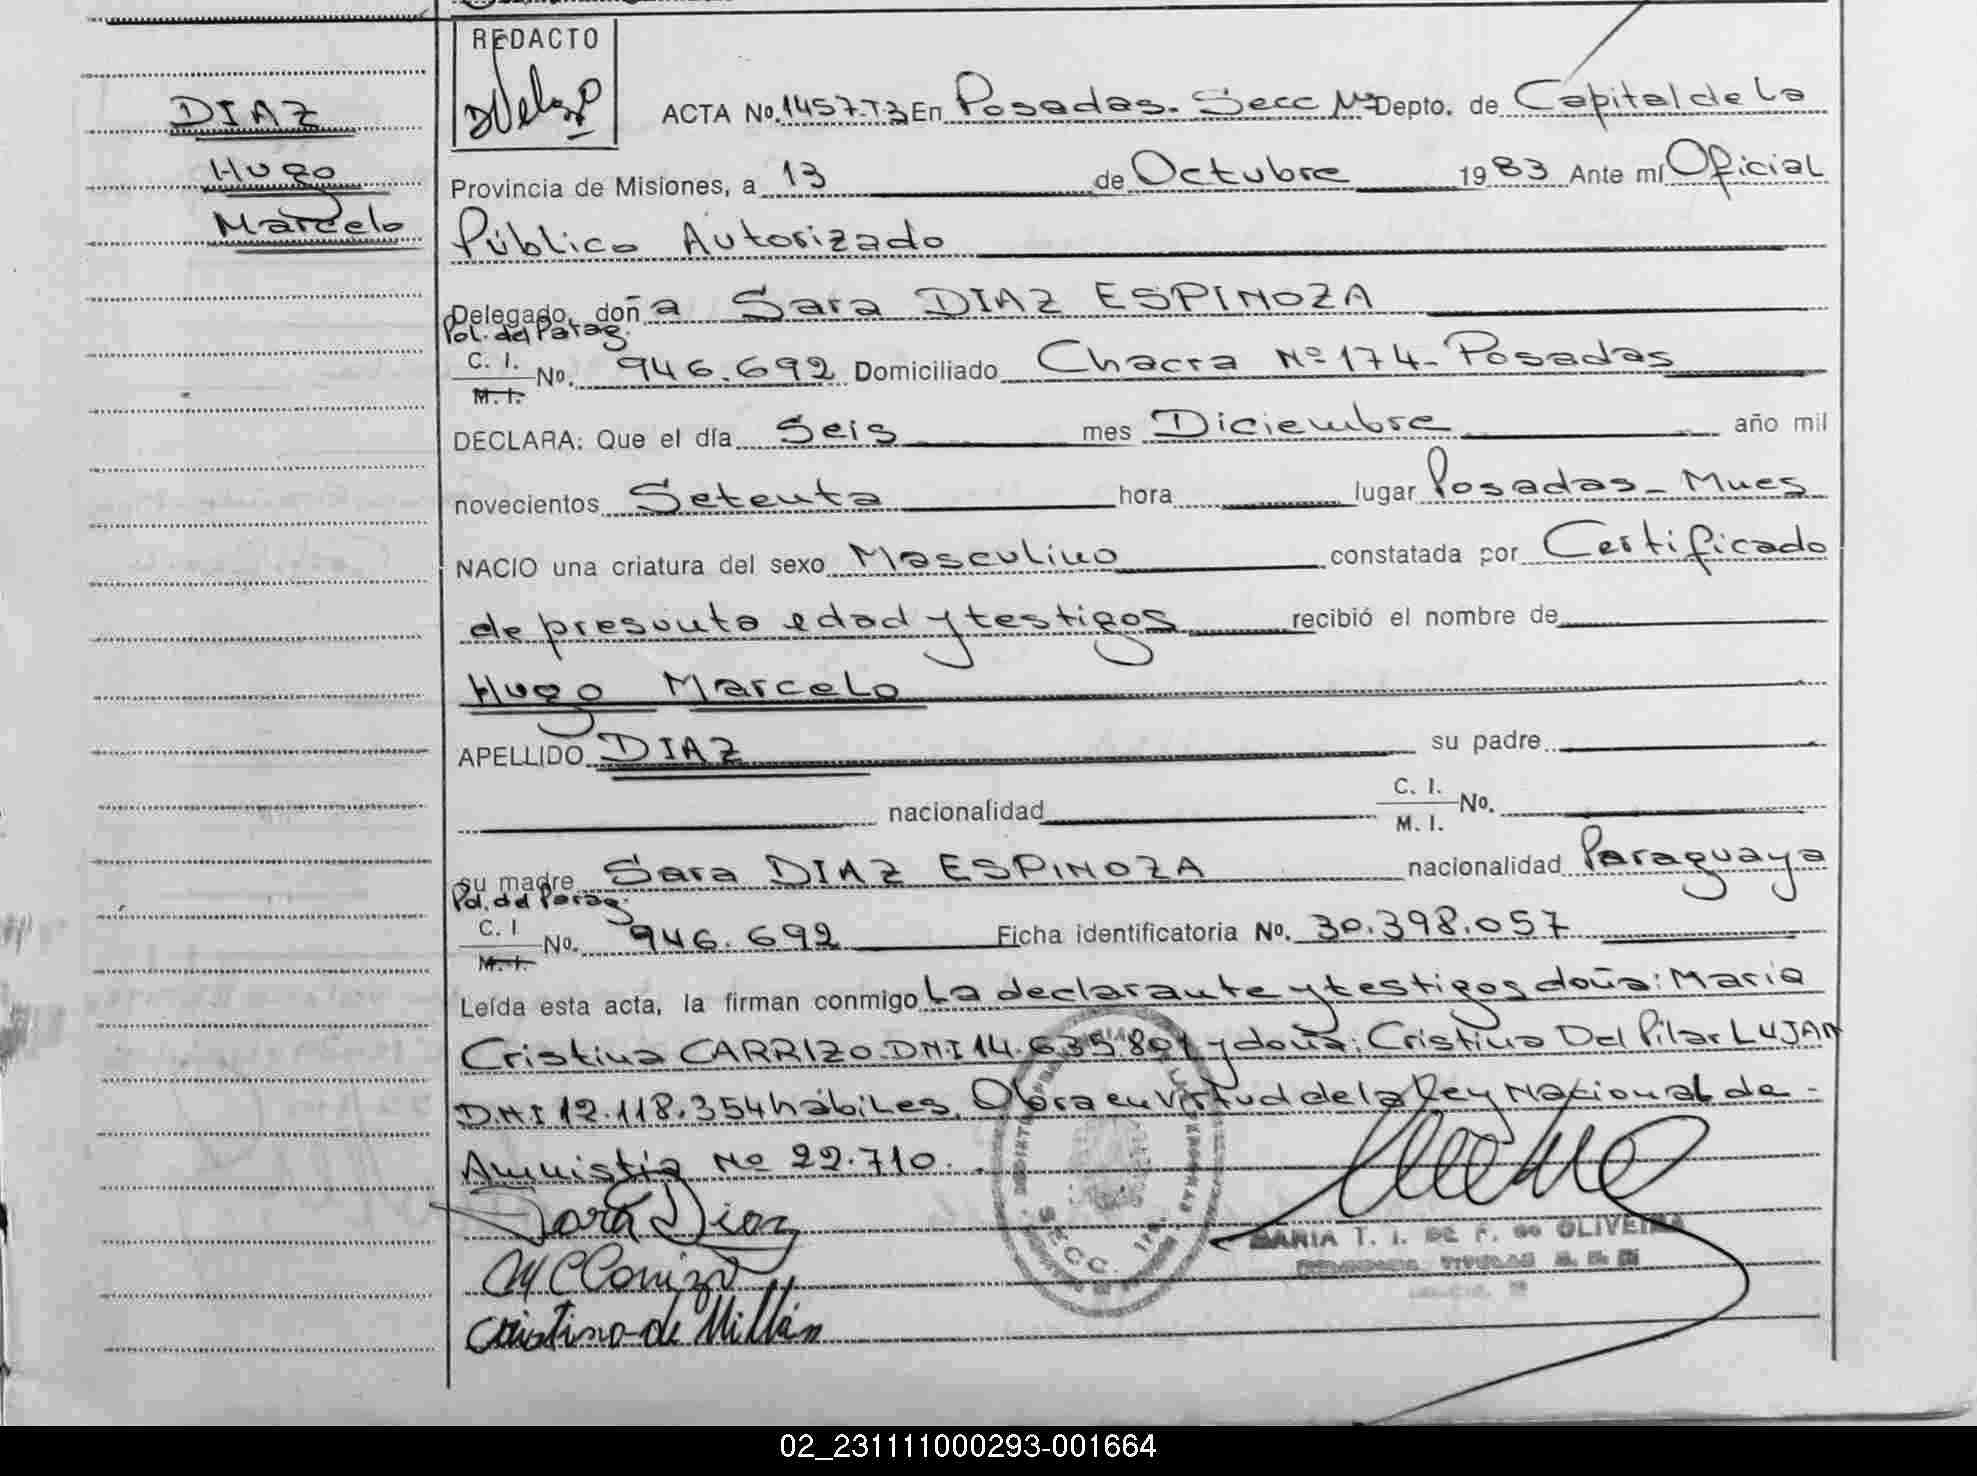 DIAZ
Hugo
Marcelo
REDACTO
ACTA No. 1457-T3 En Posadas. Secc Depto. de Capital de la
Provincia de Misiones, a 13 de Octubre 1983 Ante mí Oficial
Público Autorizado
Delegado, doña Sara DIAZ ESPINOZA
Pol. del Parag.
C. I. No. 946.692 Domiciliado Chacra Nº 174- Posadas
M. I.
DECLARA: Que el día Seis mes Diciembre año mil
novecientos Setenta hora lugar Posadas - Mnes
NACIO una criatura del sexo Masculino constatada por Certificado
de presunta edad y testigos recibió el nombre de
Hugo Marcelo
APELLIDO DIAZ su padre
nacionalidad C. I. No.
M. I.
su madre Sara DIAZ ESPINOZA nacionalidad Paraguaya
Pol. del Parag.
C. I No. 946.692 Ficha identificatoria No. 30.398.057
M. I.
Leída esta acta, la firman conmigo La declarante y testigos doña: Maria
Cristina CARRIZO DNI 14.635.801 y doña: Cristina Del Pilar LUJAN
DNI 12.118.354 hábiles. Obra en virtud de la Ley Nacional de -
Amnistia Nº 22.710.
Sara Diaz
M C Carrizo
Cristina de Millán
SECC. 1ra.
MARIA T. I. DE F. de OLIVEIRA
TITULAR
02_231111000293-001664